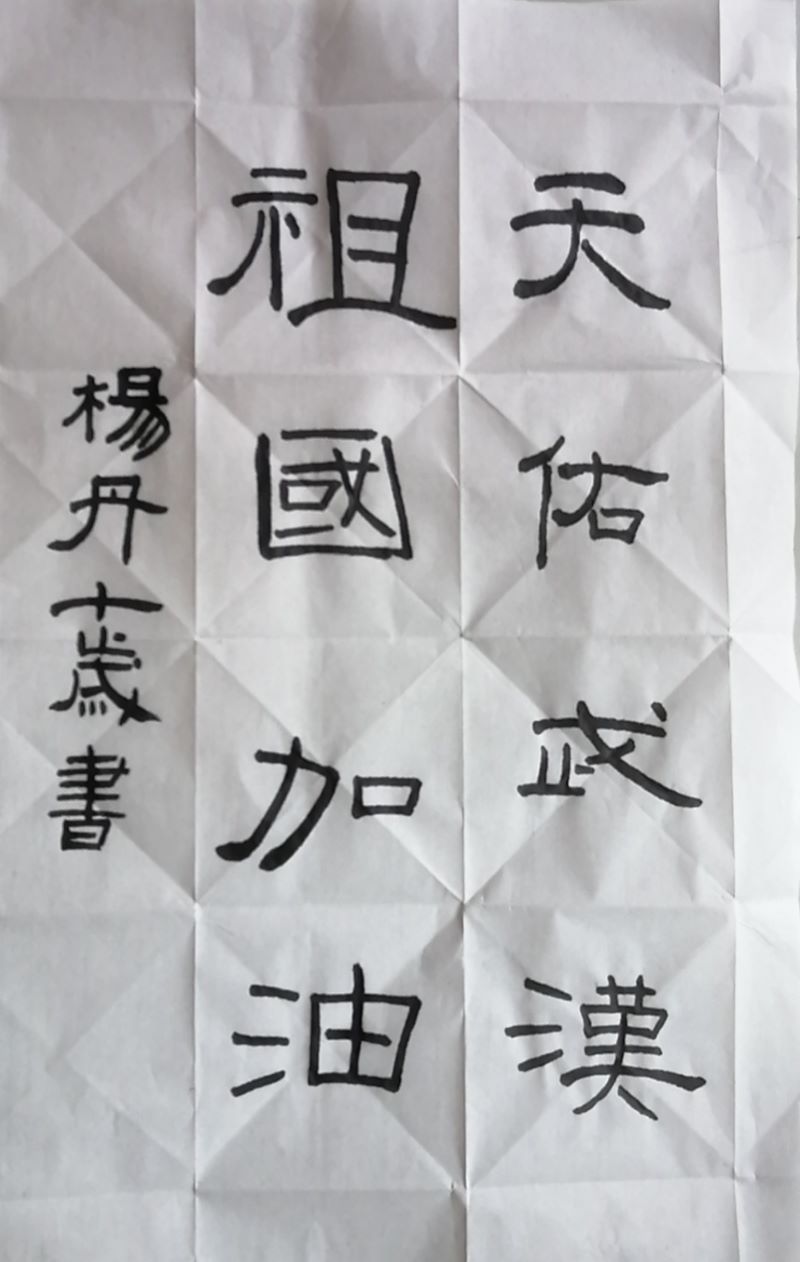 天佑武漢
祖國加油
楊丹十歲書